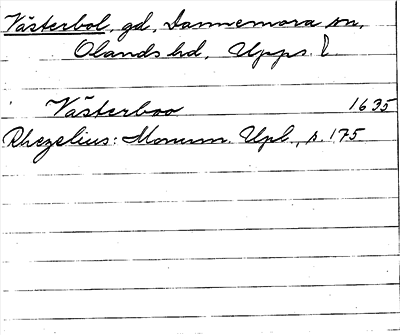 Västerbol, gd, Dannemora sn,
Olands hd, Upps. l.
Västerboo 1635
Rhezelius: Monum. Upl., s. 175